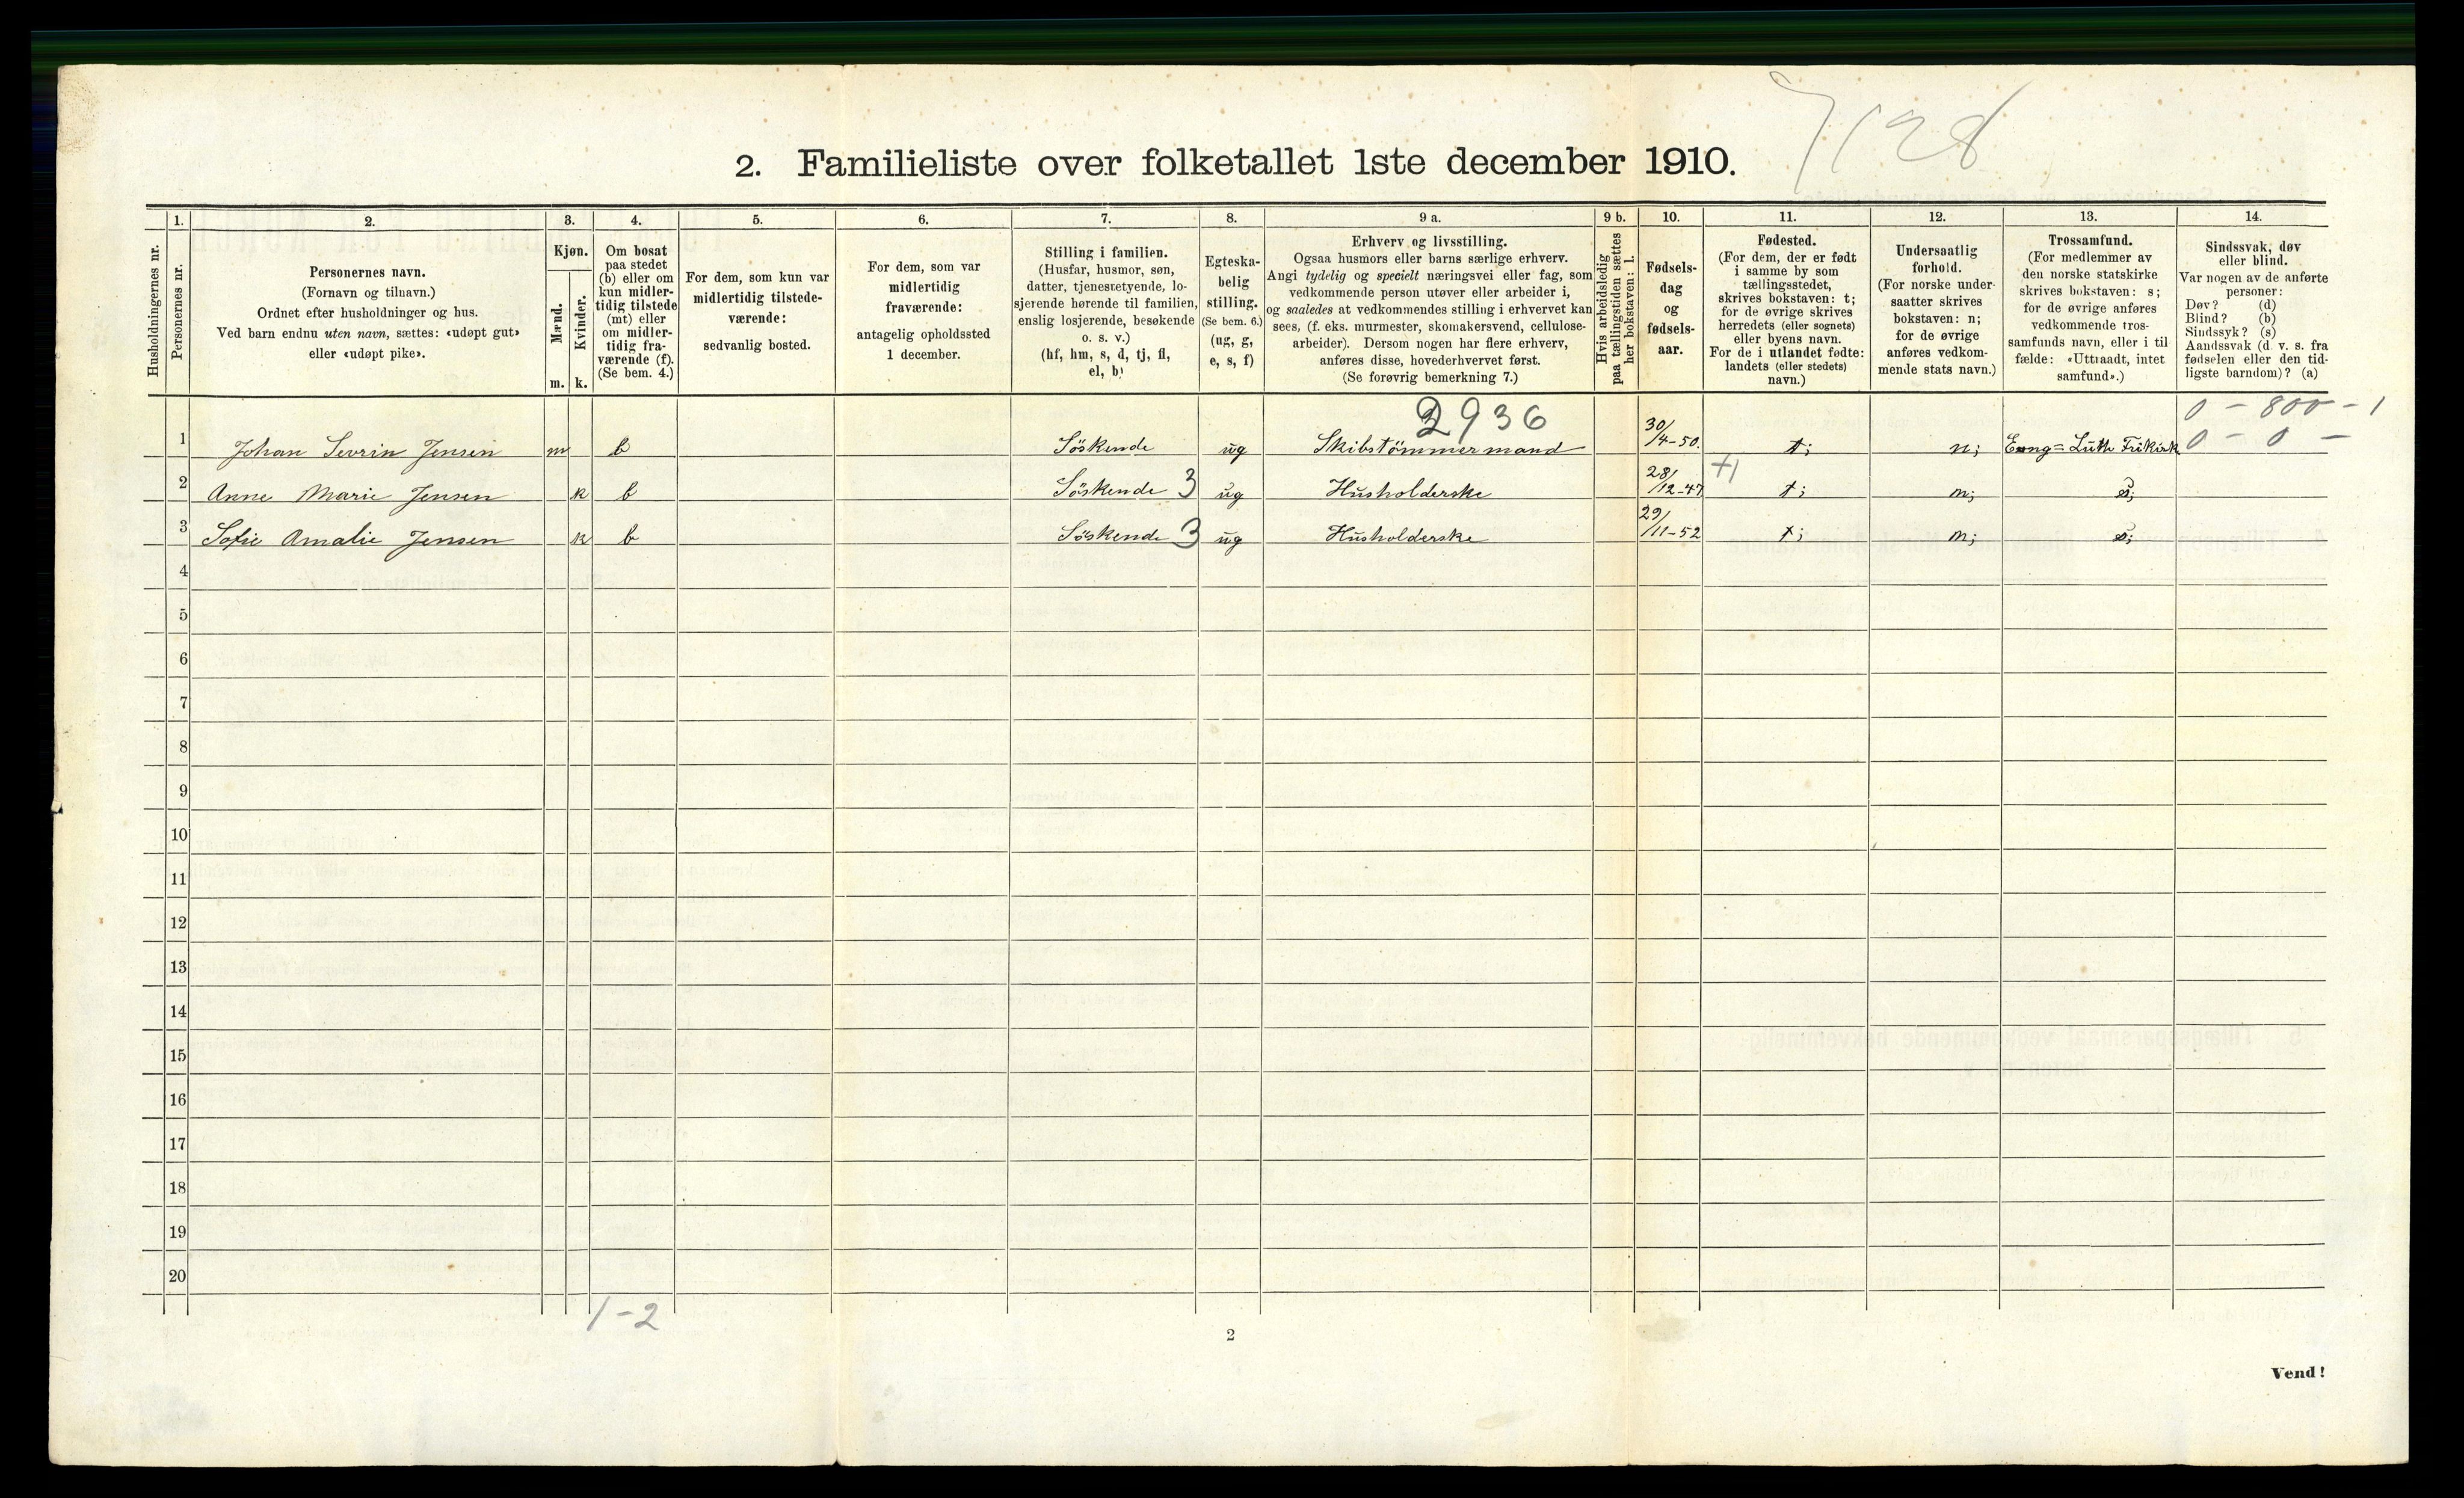 7128
2. Familieliste over folketallet 1ste december 1910.
Husholdningernes nr.
1.
Personernes nr.
2.
Personernes navn.
(Fornavn og tilnavn.)
Ordnet efter husholdninger og hus.
Ved barn endnu uten navn, sættes: «udøpt gut»
eller «udøpt pike».
3.
Kjøn.
Mænd.
Kvinder.
m. k.
4.
Om bosat
paa stedet
(b) eller om
kun midler-
tidig tilstede
(mt) eller
om midler-
tidig fra-
værende (f).
(Se bem. 4.)
5.
For dem, som kun var
midlertidig tilstede-
værende:
sedvanlig bosted.
6.
For dem, som var
midlertidig
fraværende:
antagelig opholdssted
1 december.
7.
Stilling i familien.
(Husfar, husmor, søn,
datter, tjenestetyende, lo-
sjerende hørende til familien,
enslig losjerende, besøkende
o. s. v.)
(hf, hm, s, d, tj, fl,
el, b)
8.
Egteska-
belig
stilling.
(Se bem. 6.)
(ug, g,
e, s, f)
9 a.
Erhverv og livsstilling.
Ogsaa husmors eller barns særlige erhverv.
Angi tydelig og specielt næringsvei eller fag, som
vedkommende person utøver eller arbeider i,
og saaledes at vedkommendes stilling i erhvervet kan
sees, (f. eks. murmester, skomakersvend, cellulose-
arbeider). Dersom nogen har flere erhverv,
anføres disse, hovederhvervet først.
(Se forøvrig bemerkning 7.)
9 b.
Hvis arbeidsledig
paa tællingstiden sættes
her bokstaven: l.
10.
Fødsels-
dag
og
fødsels-
aar.
11.
Fødested.
(For dem, der er født
i samme by som
tællingsstedet,
skrives bokstaven: t;
for de øvrige skrives
herredets (eller sognets)
eller byens navn.
For de i utlandet fødte:
landets (eller stedets)
navn.)
12.
Undersaatlig
forhold.
(For norske under-
saatter skrives
bokstaven: n;
for de øvrige
anføres vedkom-
mende stats navn.)
13.
Trossamfund.
(For medlemmer av
den norske statskirke
skrives bokstaven: s;
for de øvrige anføres
vedkommende tros-
samfunds navn, eller i til
fælde: «Uttraadt, intet
samfund».)
14.
Sindssvak, døv
eller blind.
Var nogen av de anførte
personer:
Døv? (d)
Blind? (b)
Sindssyk? (s)
Aandssvak (d. v. s. fra
fødselen eller den tid-
ligste barndom)? (a)
2936
0 - 800 - 1
1 Johan Sevrin Jensen m b Söskende ug Skibstömmermand 30/4-50. t; n; Evng=Luth Frikirk 0 - 0 -
2 Anne Marie Jensen k b Söskende 3 ug Husholderske 28/12-47 t; n; s;
3 Sofie Amalie Jensen k b Söskende 3 ug Husholderske 29/11-52 t; n; s;
4
5
6
7
8
9
10
11
12
13
14
15
16
17
18
19
20
1-2
2
Vend!